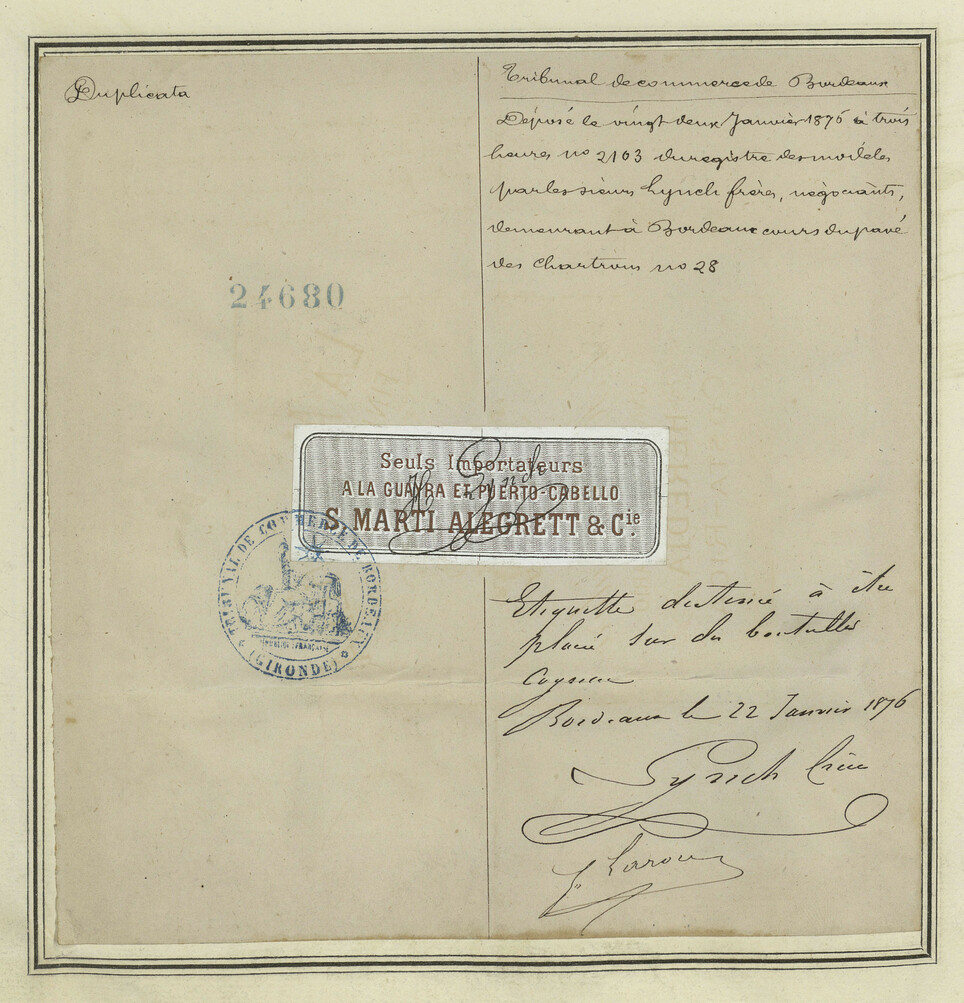 Duplicata
Tribunal de commerce de Bordeaux
Déposé le vingt deux Janvier 1876 à trois
heures no 2103 du registre des modèles
par les sieurs Lynch frères, négociants,
demeurant à Bordeaux cours du pavé
des Chartrons no 28
24680
Seuls Importateurs
A LA GUAYRA ET PUERTO-CABELLO
S. MARTI ALEGRETT & Cie.
TRIBUNAL DE COMMERCE DE BORDEAUX
RÉPUBLIQUE FRANÇAISE
(GIRONDE)
Etiquette destinée à être
placée sur des bouteilles
Cognac
Bordeaux le 22 Janvier 1876
Lynch frères